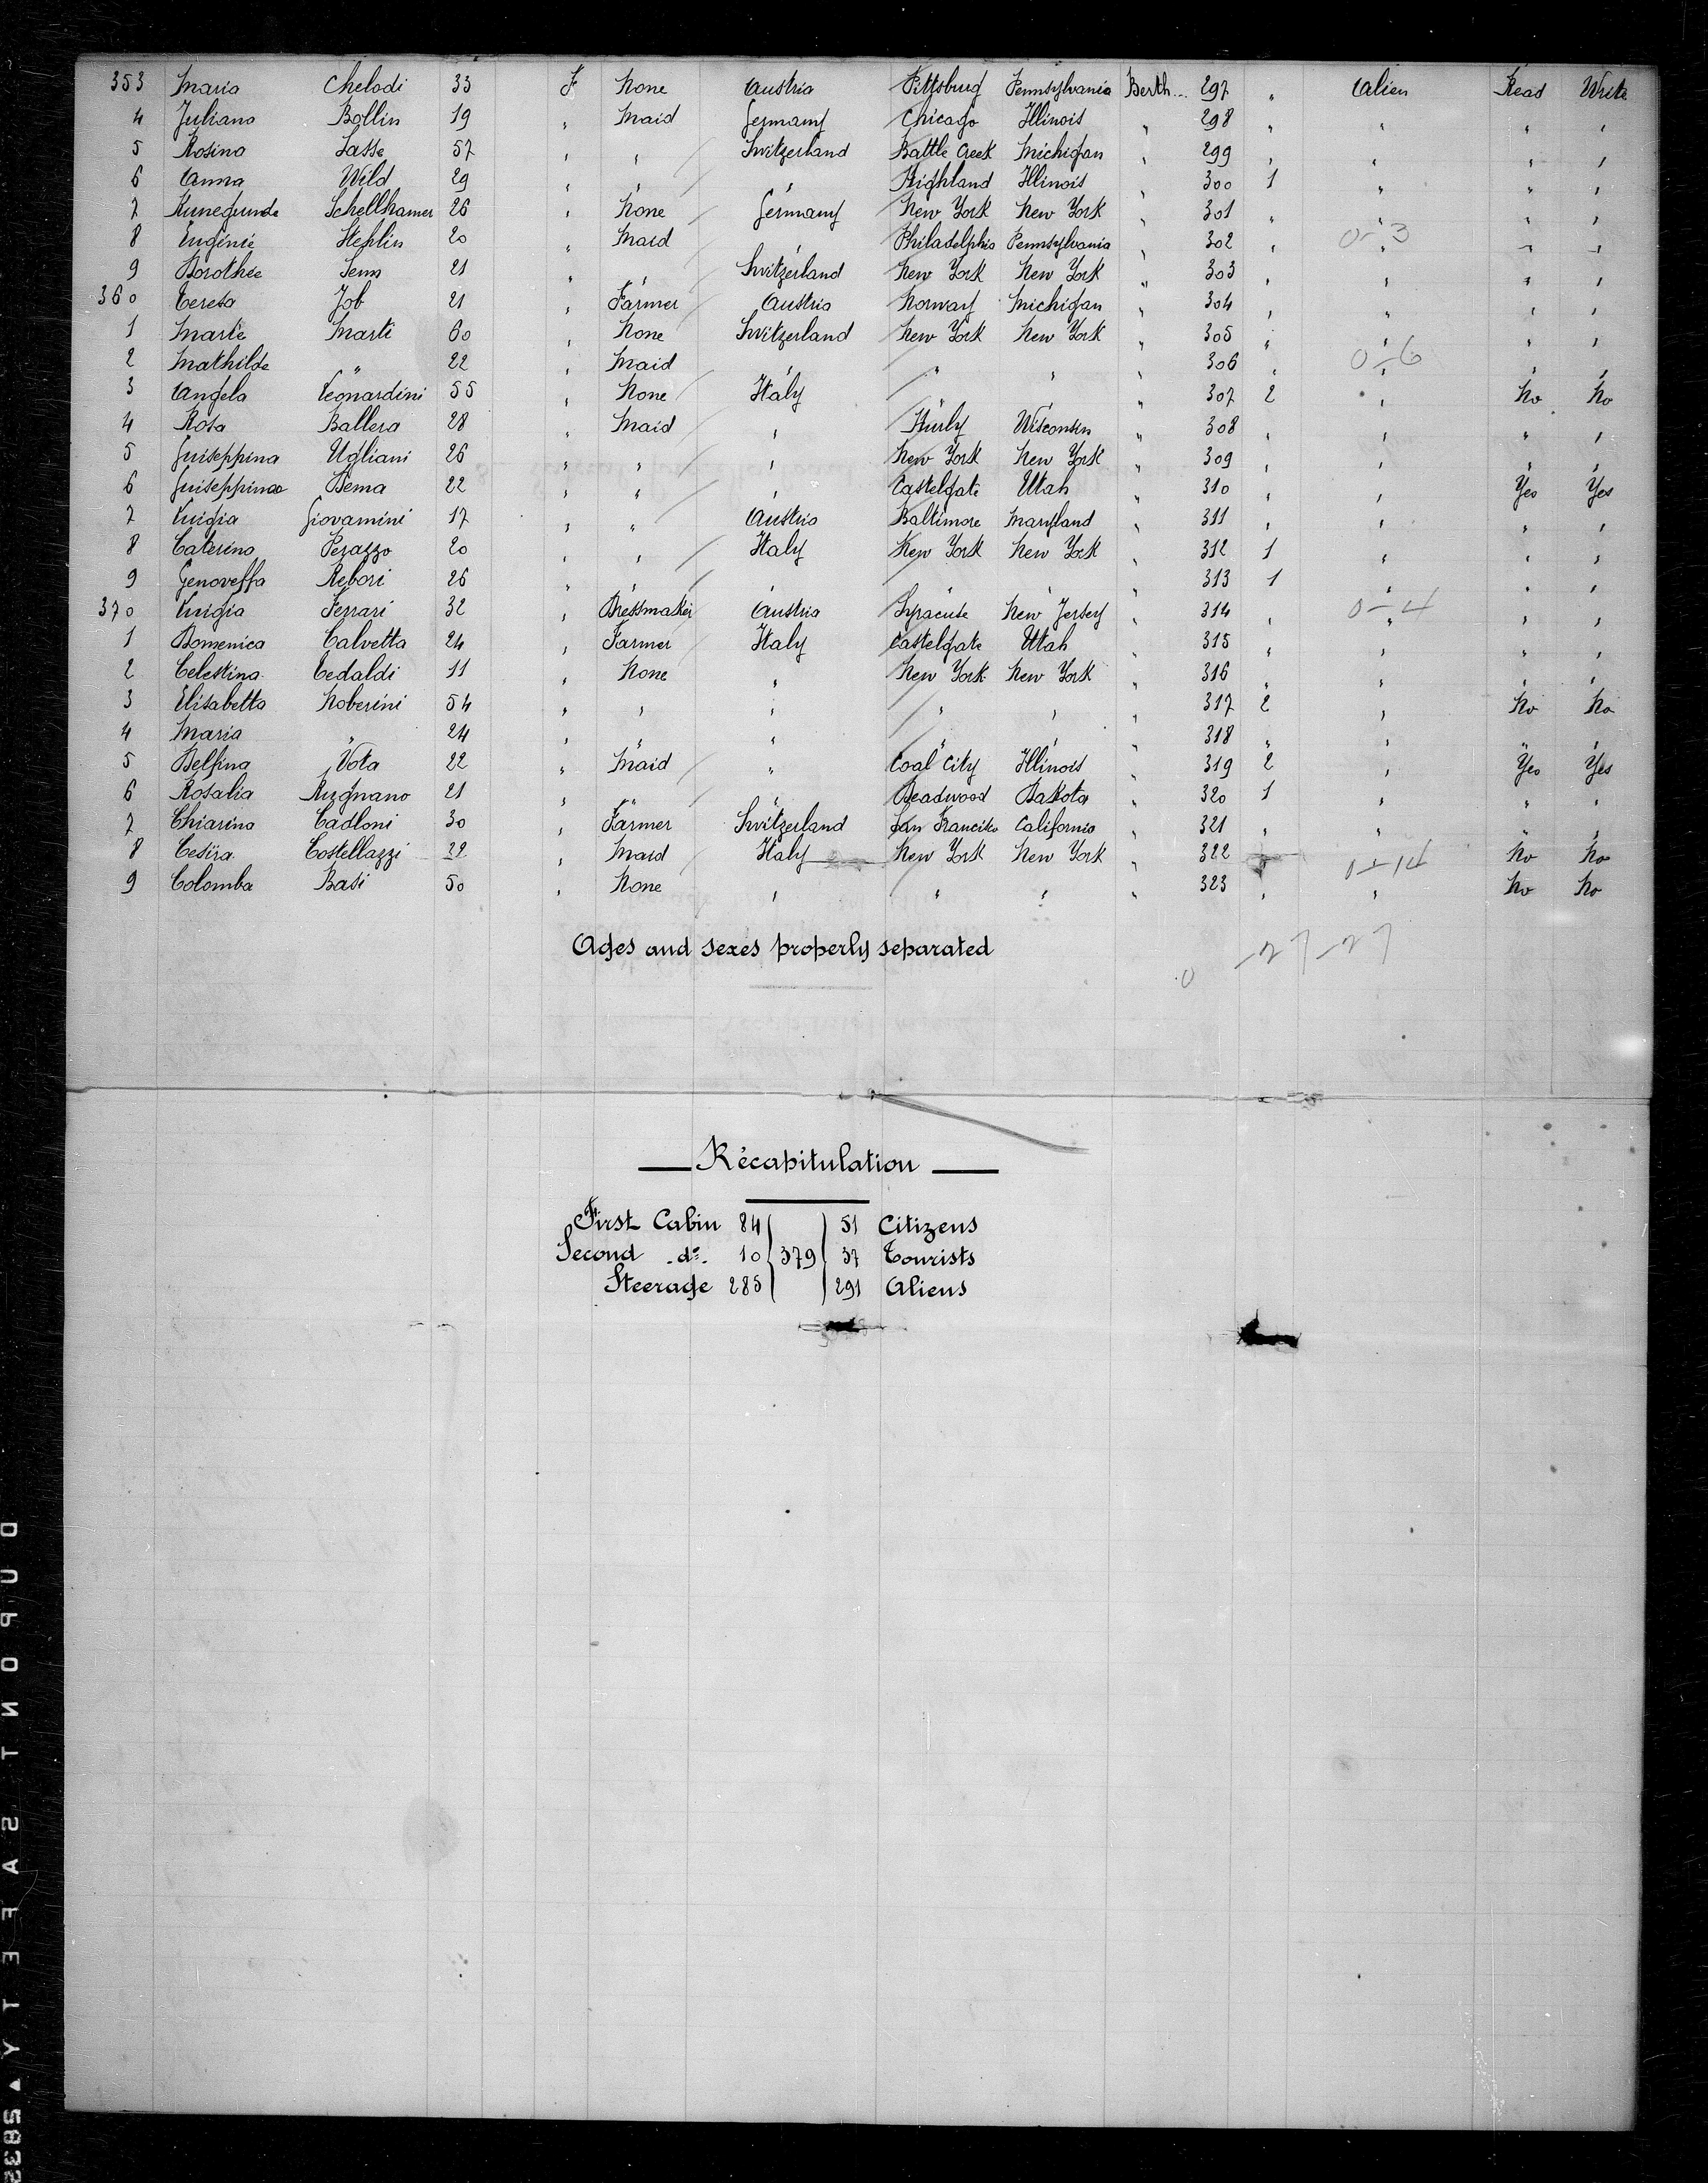 353 Maria Chelodi 33 F None Austria Pittsburg Pennsylvania Berth 297 " Alien Read Write
4 Juliana Bollin 19 " Maid Germany Chicago Illinois " 298 " " " "
5 Rosina Sasse 57 " " Switzerland Battle Creek Michigan " 299 " " " "
6 Anna Wild 29 " " " Highland Illinois " 300 1 " " "
7 Kunegunde Schellhamer 26 " None Germany New York New York " 301 " " " "
8 Eugénie Stehlin 20 " Maid " Philadelphia Pennsylvania " 302 " 0-3 " " "
9 Dorothée Senn 21 " " Switzerland New York New York " 303 " " " "
360 Teresa Job 21 " Farmer Austria Norway Michigan " 304 " " " "
1 Marie Marti 60 " None Switzerland New York New York " 305 " " " "
2 Mathilde " 22 " Maid " " " " 306 " 0-6 " " "
3 Angela Leonardini 55 " None Italy " " " 307 2 " No No
4 Rosa Ballera 28 " Maid " Hurly Wisconsin " 308 " " " "
5 Guiseppina Ugliani 26 " " " New York New York " 309 " " " "
6 Guiseppina Bema 22 " " " Castelgate Utah " 310 " " Yes Yes
7 Luigia Giovamini 17 " " Austria Baltimore Maryland " 311 " " " "
8 Caterina Perazzo 20 " " Italy New York New York " 312 1 " " "
9 Genoveffa Rebori 26 " " " " " " 313 1 " " "
370 Luigia Ferrari 32 " Dressmaker Austria Syracuse New Jersey " 314 " 0-4 " " "
1 Domenica Calvetta 24 " Farmer Italy Castelgate Utah " 315 " " " "
2 Celestina Cedaldi 11 " None " New York New York " 316 " " " "
3 Elisabetta Noberini 54 " " " " " " 317 2 " No No
4 Maria " 24 " " " " " " 318 " " " "
5 Delfina Vota 22 " Maid " Coal City Illinois " 319 2 " Yes Yes
6 Rosalia Rugnano 21 " " " Deadwood Dakota " 320 1 " " "
7 Chiarina Cadloni 30 " Farmer Switzerland San Francisco California " 321 " " " "
8 Cesira Costellazzi 32 " Maid Italy New York New York " 322 0-14 No No
9 Colomba Basi 50 " None " " " " 323 " " No No
Ages and sexes properly separated
0 -27-27
Récapitulation
First Cabin 84 } { 51 Citizens
Second do. 10 } 379 { 37 Tourists
Steerage 285 } { 291 Aliens
DUPONT SAFETY